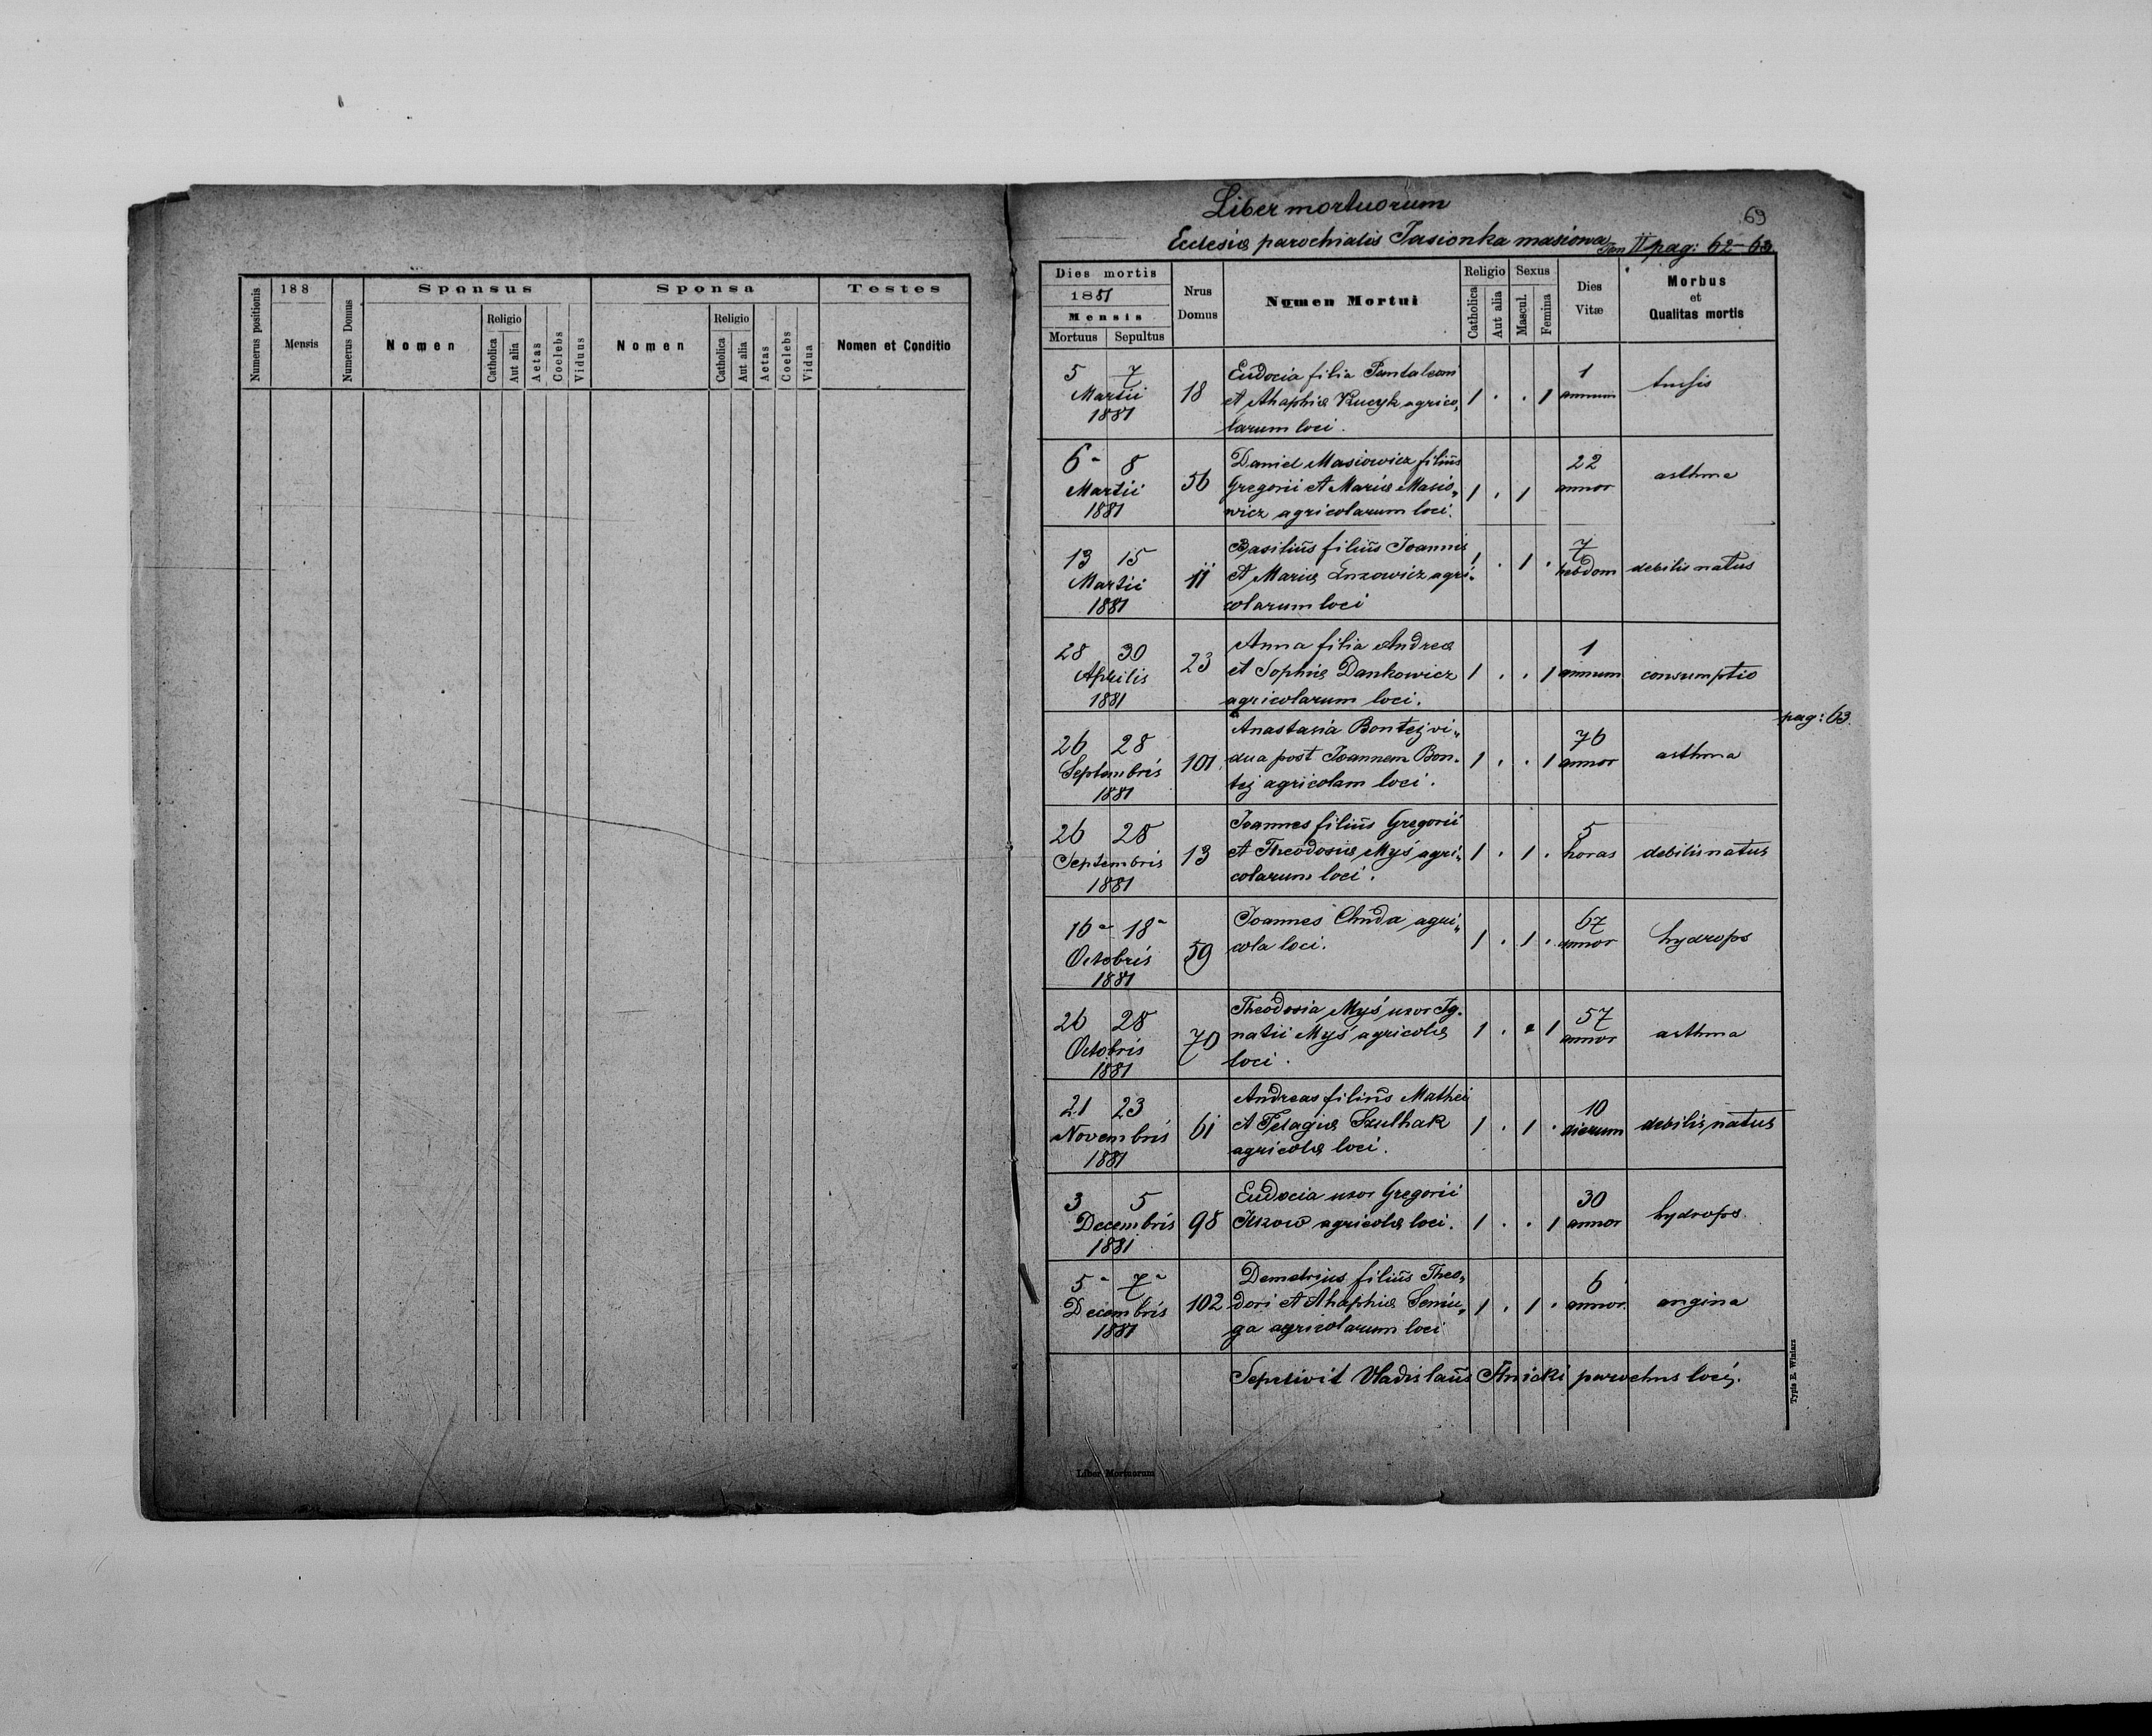 Numerus positionis
188
Mensis
Numerus Domus
Sponsus
Nomen
Religio
Catholica
Aut alia
Aetas
Coelebs
Viduus
Sponsa
Nomen
Religio
Catholica
Aut alia
Aetas
Coelebs
Vidua
Testes
Nomen et Conditio
Liber mortuorum
69
Ecclesiæ parochialis Jasionka masiowa Tom II pag: 62-63.
Dies mortis
1881
Mensis
Mortuus Sepultus
Nrus Domus
Nomen Mortui
Religio
Catholica
Aut alia
Sexus
Mascul.
Femina
Dies Vitæ
Morbus
et
Qualitas mortis
5 7 Martii 1881
18
Eudocia filia Pantaleoni
et Ahaphiæ Kucyk agrico„
larum loci.
1 . . 1
1 annum
tussis
6 8 Martii 1881
56
Daniel Masiowicz filiūs
Gregorii et Mariæ Masio„
wicz agricolarum loci.
1 . 1
22 annor
asthma
13 15 Martii 1881
11
Basiliūs filiūs Joannis
et Mariæ agri„
colarum loci
1 . 1 .
7 hebdom
debilis natus
28 30 Aprilis 1881
23
Anna filia Andreæ
et Sophiæ Dankowicz
agricolarum loci.
1 . . 1
1 annum
consumptio
pag: 63.
26 28 Septembris 1881
101
Anastasia Bontej vi„
dua post Joannem Bon„
tej agricolam loci.
1 . . 1
76 annor
asthma
26 28 Septembris 1881
13
Joannes filiūs Gregorii
et Theodosiæ Myś agri„
colarum loci.
1 . 1 .
5 horas
debilis natus
16 18 Octobris 1881
59
Joannes Chuda agri„
cola loci.
1 . 1 .
67 annor
hydrops
26 28 Octobris 1881
70
Theodosia Myś uxor Ig„
natii Myś agricolæ
loci.
1 . . 1
57 annor
asthma
21 23 Novembris 1881
61
Andreas filiūs Mathei
et Pelagiæ Szulhak
agricolæ loci.
1 . 1 .
10 dierum
debilis natus
3 5 Decembris 1881
98
Eudocia uxor Gregorii
Ilkow agricolæ loci.
1 . . 1
30 annor
hydrops.
5 7 Decembris 1881
102
Demetrius filiūs Theo„
dori et Ahaphiæ Semiu„
ga agricolarum loci
1 . 1 .
6 annor.
angina
Sepelivit Vladislaūs parochus loci.
Typis E. Winiarz
Liber Mortuorum